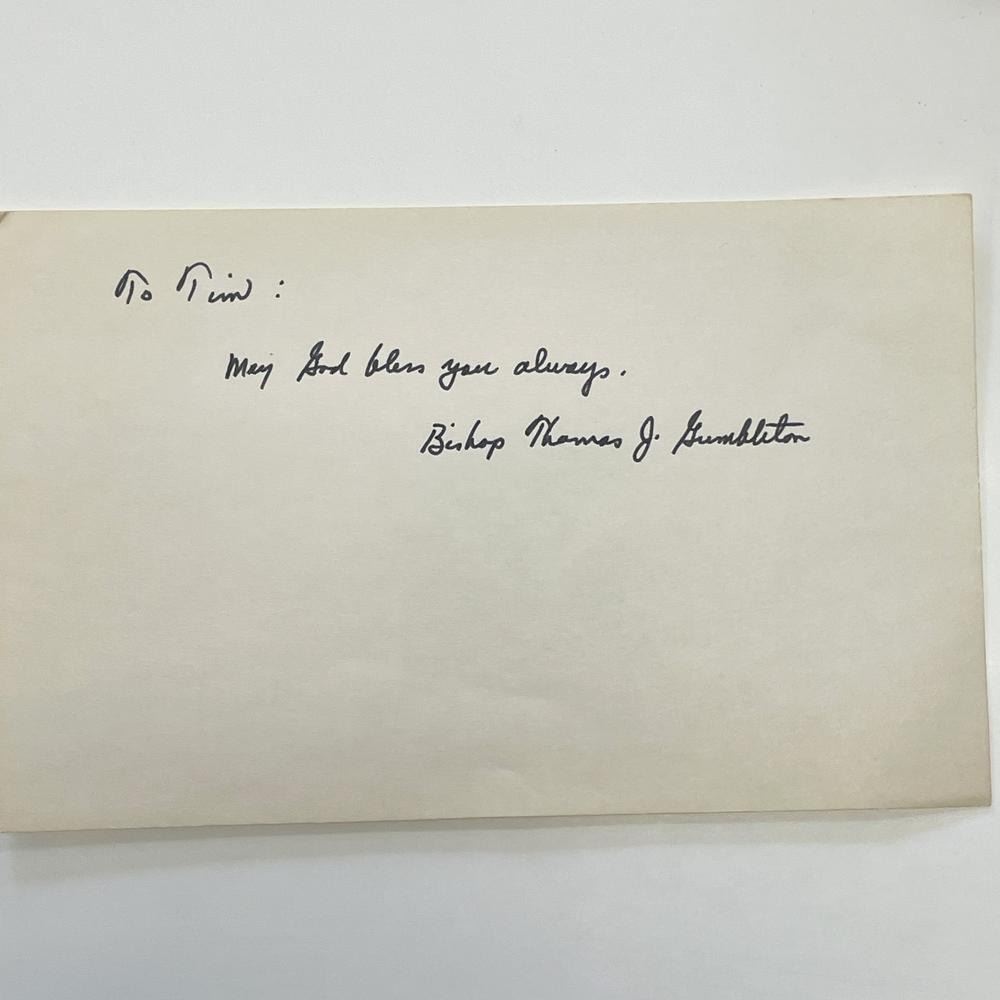 To Tim:
May God bless you always.
Bishop Thomas J. Gumbleton